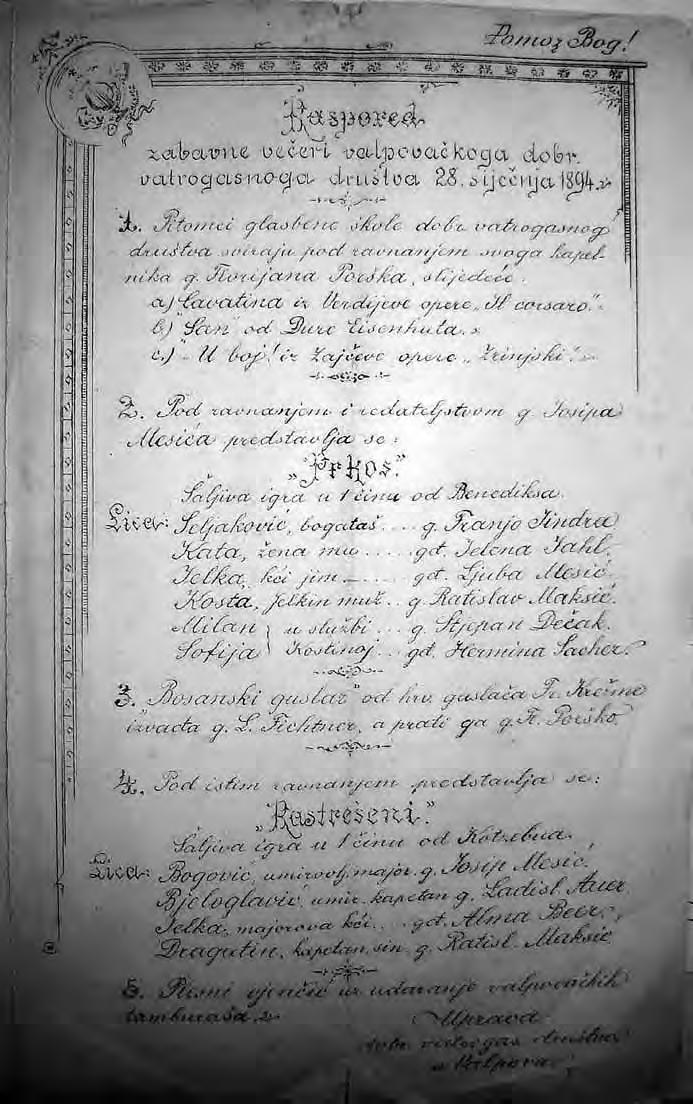 Pomoz Bog!
Raspored
zabavne večeri valpovačkoga dobr.
vatrogasnoga društva 28. siječnja 1894.
1. Pitomci glasbene škole dobr. vatrogasnog
društva sviraju pod ravnanjem svoga kapel-
nika g. Florijana Porška, slijedeće:
a) Cavatina iz Verdijeve opere „Il corsaro".
b) "San" od Đure Eisenhuta.
c.) „U boj!" iz Zajčeve opere „Zrinjski".
2. Pod ravnanjem i redateljstvom g. Josipa
Mesića predstavlja se:
„Prkos."
Šaljiva igra u 1 činu od Benediksa.
Lica: Seljaković, bogataš.... g. Franjo Jindra
Kata, žena mu..... gđ. Jelena Jahl.
Jelka, kći jim..... gđ. Ljuba Mesić.
Kosta, Jelkin muž.. g. Ratislav Maksić.
Milan } u službi... g. Stjepan Dečak.
Sofija } Kostinoj... gđ. Hermina Sacher.
3. „Bosanski guslar" od hrv. guslača Fr. Krežme
izvađa g. L. Fichtner, a prati ga g. Fl. Porško.
4. Pod istim ravnanjem predstavlja se:
„Rastrešeni."
Šaljiva igra u 1 činu od Kotzebua.
Lica: Bogović, umirovlj. major. g. Josip Mesić.
Bjeloglavić, umir. kapetan g. Ladisl. Auer
Jelka, majorova kći... gđ. Alma Beer.
Dragutin, kapetan. sin. g. Ratisl. Maksić
5. Pjesni uz udaranje valpovačkih
tamburaša.
Uprava
dobr. vatrogas. društva
u Valpovu.